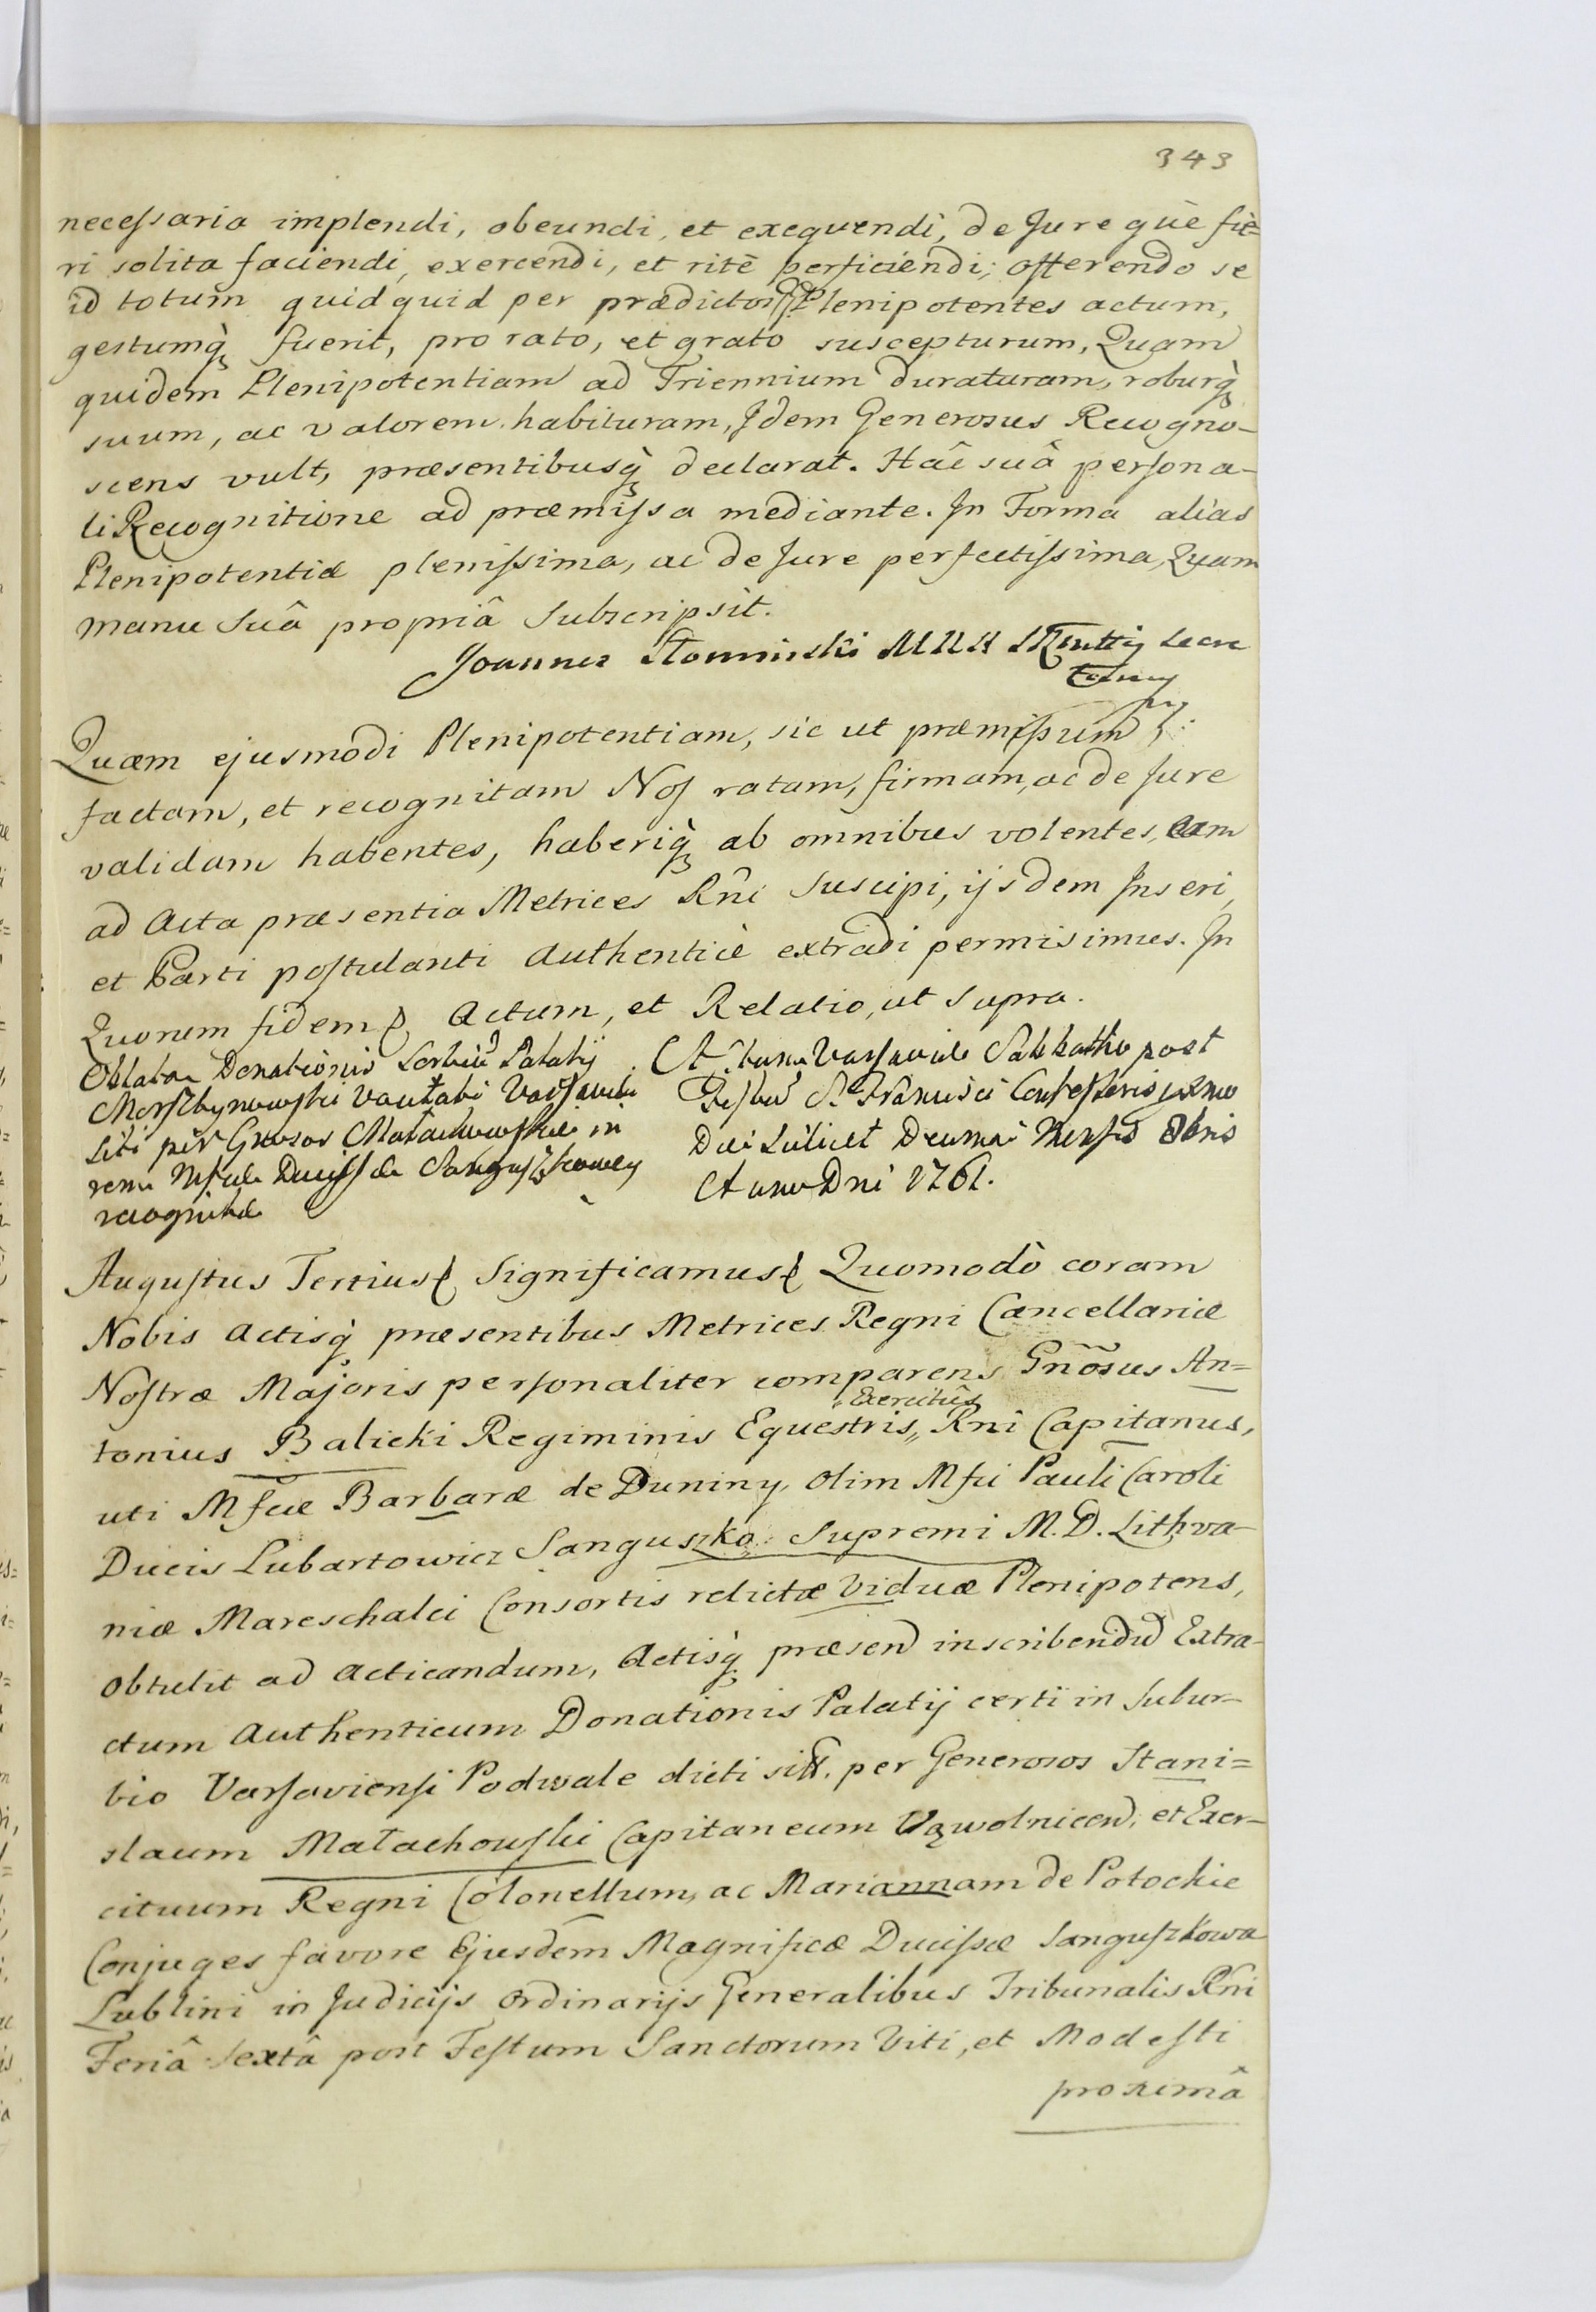 343
necessaria implendi, obeundi, et exequendi, de Jure què fie-
ri solita faciendi, exercendi, et ritè perficiendi; offerendo se
id totum quidquid per prædictos Plenipotentes actum,
gestumq̀ fuerit, pro rato, et grato suscepturum, Quam
quidem Plenipotentiam ad Triennium duraturam, roburq̀
suum, ac valorem habituram, Idem Generosus Recogno-
scens vult, præsentibusq̀ declarat. Hâc suâ persona-
li Recognitione ad præmissa mediante. In Forma alias
Plenipotentiæ plenissima, ac de Jure perfectissima, Quam
manu Suâ propriâ Subscripsit.
Joannes Słominski
Quam ejusmodi Plenipotentiam, sic ut præmissum
factam, et recognitam Nos ratam, firmam, ac de Jure
validam habentes, haberiq̀ ab omnibus volentes, eam
ad Acta præsentia Metrices Rñi Suscipi, ijsdem Inseri,
et Parti postulanti Authenticè extradi permisimus. In
Quorum fidem Actum, et Relatio, ut Supra.
Oblata Donationis Palatij
Varsaviæ
Siti per Gnosos Małachowskie in
rem Mficæ Ducissæ Sanguszkowey
recognitæ
Actum Varsaviæ Sabbatho post
Festum S. Francisci Confessoris
Die Scilicet Decima Mensis 8bris
Anno Dni 1761.
Augustus Tertius Significamus Quomodò coram
Nobis Actisq̀ præsentibus Metrices Regni Cancellariæ
Nostræ Majoris personaliter comparens Gnõsus An=
tonius Balicki Regiminis Equestris Exercitûs Rni Capitanus,
uti Mfcæ Barbaræ de Duniny, olim Mfci Pauli Caroli
Ducis Lubartowicz Sanguszko Supremi M. D. Lithva-
niæ Mareschalci Consortis relictæ Viduæ Plenipotens,
Obtulit ad Acticandum, Actisq̀ præsen inscribendū Extra-
ctum Authenticum Donationis Palatij certi in Subur-
bio Varsaviensi Podwale dicti siti. per Generosos Stani=
slaum Małachowski Capitaneum Wąwolnicen, et Exer-
cituum Regni Colonellum, ac Mariannam de Potockie
Conjuges favore Ejusdem Magnificæ Ducissæ Sanguszkowa
Lublini in Judicijs Ordinarijs Generalibus Tribunalis Rni
Feriâ Sextâ post Festum Sanctorum Viti, et Modesti
proximâ